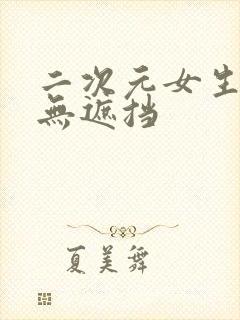 二次元女生
無遮挡
夏美舞